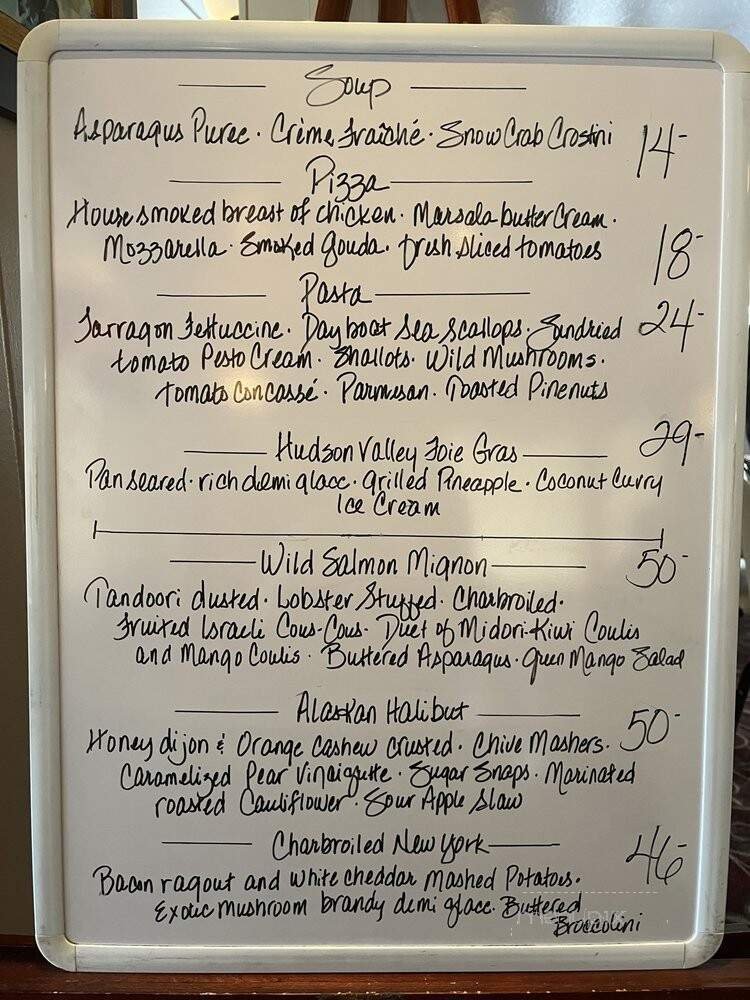 Soup
Asparagus Puree · Crème Fraîché · Snow Crab Crostini 14-
Pizza
House smoked breast of chicken · Marsala butter Cream ·
Mozzarella · Smoked gouda · fresh sliced tomatoes 18-
Pasta
Tarragon Fettuccine · Day boat Sea Scallops · Sundried 24-
tomato Pesto Cream · Shallots · Wild Mushrooms ·
tomato Concassé · Parmesan · Toasted Pinenuts
Hudson Valley Foie Gras 29-
Pan seared · rich demi glace · grilled Pineapple · Coconut Curry
Ice Cream
Wild Salmon Mignon 50-
Tandoori dusted · Lobster Stuffed · Charbroiled ·
Fruited Israeli Cous-Cous · Duet of Midori-Kiwi Coulis
and Mango Coulis · Buttered Asparagus · Green Mango Salad
Alaskan Halibut 50-
Honey dijon & Orange cashew crusted · Chive Mashers ·
Caramelized Pear Vinaigutte · Sugar Snaps · Marinated
roasted Cauliflower · Sour Apple Slaw
Charbroiled New York 46-
Bacon ragout and white cheddar Mashed Potatoes ·
Exotic mushroom brandy demi glace · Buttered
Broccolini